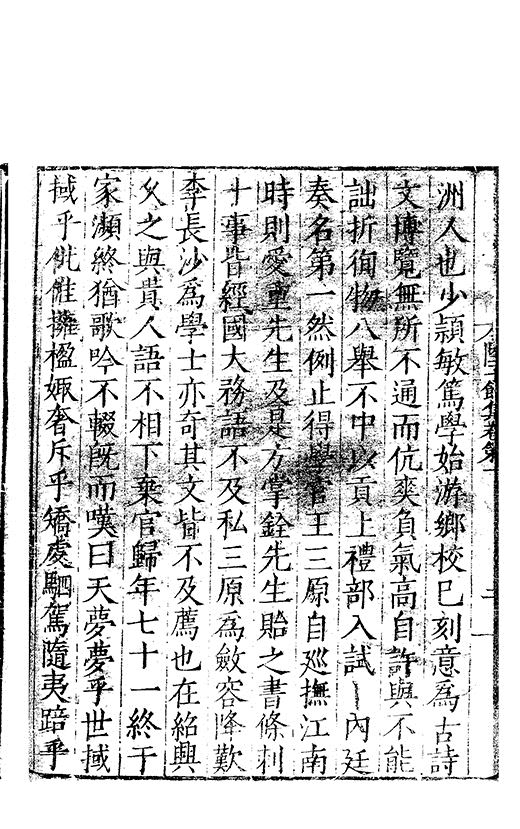 洲人也少頴敏篤學始游鄉校已刻意為古詩
文博覽無所不通而伉爽負氣高自許與不能
詘折徇物八舉不中以貢上禮部入試内廷
奏名第一然例止得學官王三原自廵撫江南
時則愛重先生及是方掌銓先生貽之書條刺
十事皆經國大務語不及私三原為斂容降歎
李長沙為學士亦奇其文皆不及薦也在紹興
久之與貴人語不相下棄官歸年七十一終于
家瀕終猶歌吟不輟旣而嘆曰天夢夢乎世掝
掝乎仳倠擁楹娵奢斥乎矯虔駟駕隨夷踣乎